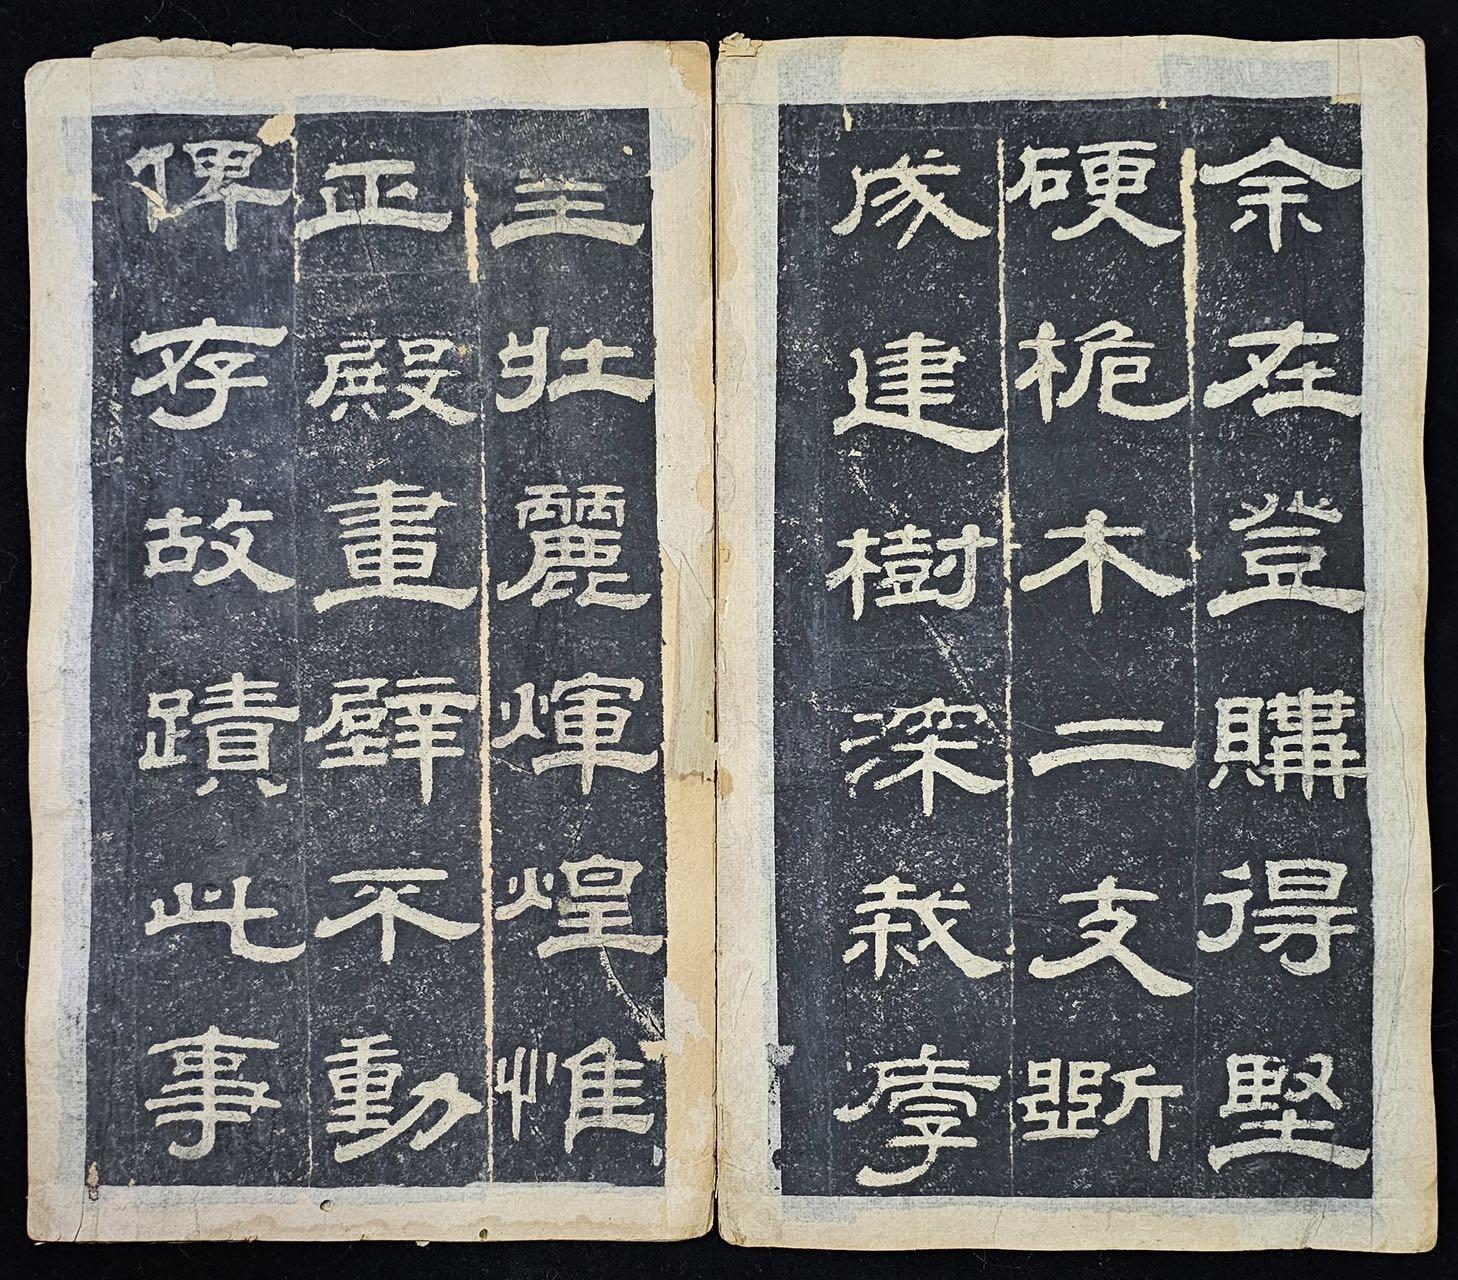 余在登購得堅
硬桅木二支斲
成建樹深栽厚
主壯麗輝煌惟
正殿畫壁不動
俾存故蹟此事